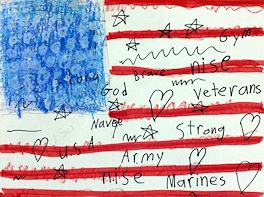 Gym
Strong Brave nise
God veterans
Navye Strong
U.S.A Army
nise Marines